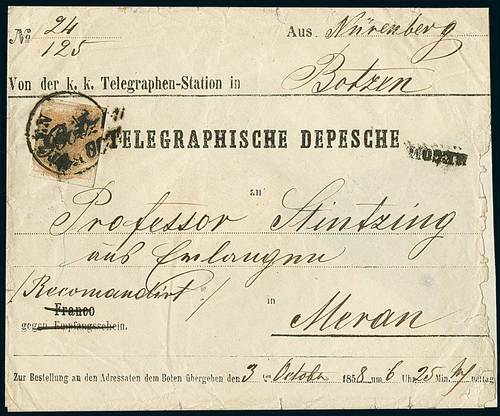 № 24
125
Aus Nürenberg
Von der k. k. Telegraphen-Station in Botzen
TELEGRAPHISCHE DEPESCHE
an
Professor Stintzing
aus Erlangen
/Recomandirt/
Franco
gegen Empfangsschein.
in
Meran
Zur Bestellung an den Adressaten dem Boten übergeben den 3 October 1858 um 6 Uhr 25 Min. mittag